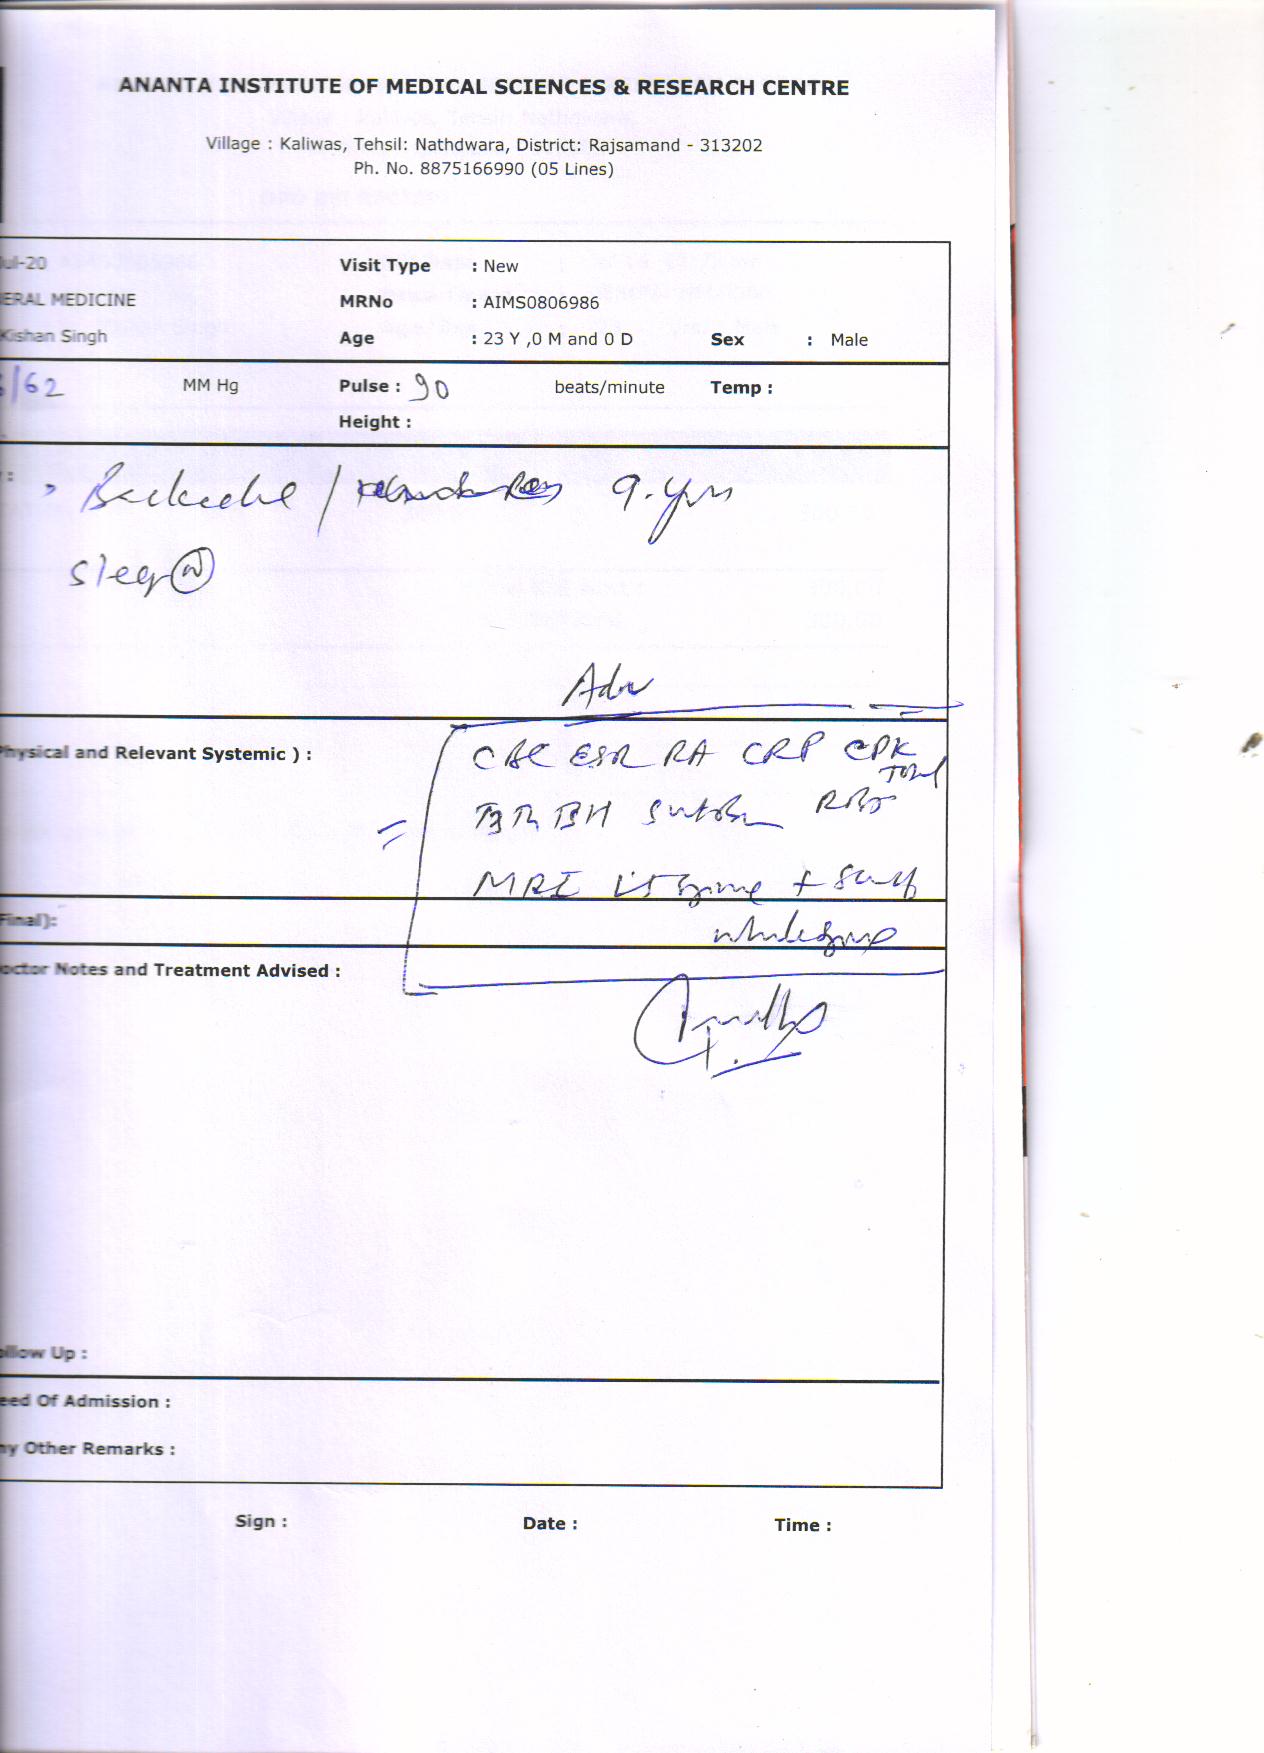 ANANTA INSTITUTE OF MEDICAL SCIENCES & RESEARCH CENTRE
Village : Kaliwas, Tehsil: Nathdwara, District: Rajsamand - 313202
Ph. No. 8875166990 (05 Lines)
ul-20 Visit Type : New
ERAL MEDICINE MRNo : AIMS0806986
Kishan Singh Age : 23 Y ,0 M and 0 D Sex : Male
/62 MM Hg Pulse : 90 beats/minute Temp :
Height :
Backache / 9. yrs
Sleep (N)
Adv
Physical and Relevant Systemic ) :
CBC ESR RA CRP CPK
Total
T3 T4 TSH RBS
MRI LS Spine + Scr of
Final): whole spine
octor Notes and Treatment Advised :
ollow Up :
eed Of Admission :
ny Other Remarks :
Sign : Date : Time :